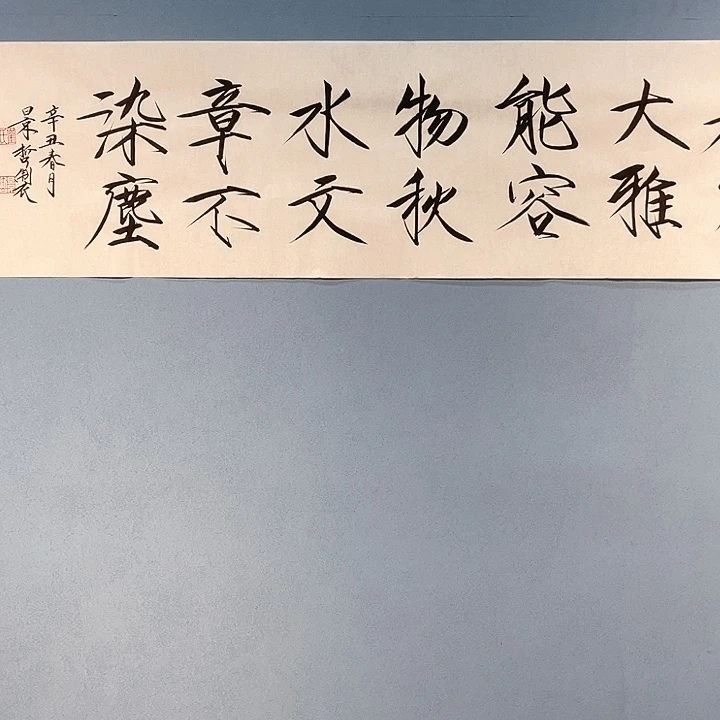 大雅
能容
物秋
水文
章不
染塵
辛丑春月
景哲製